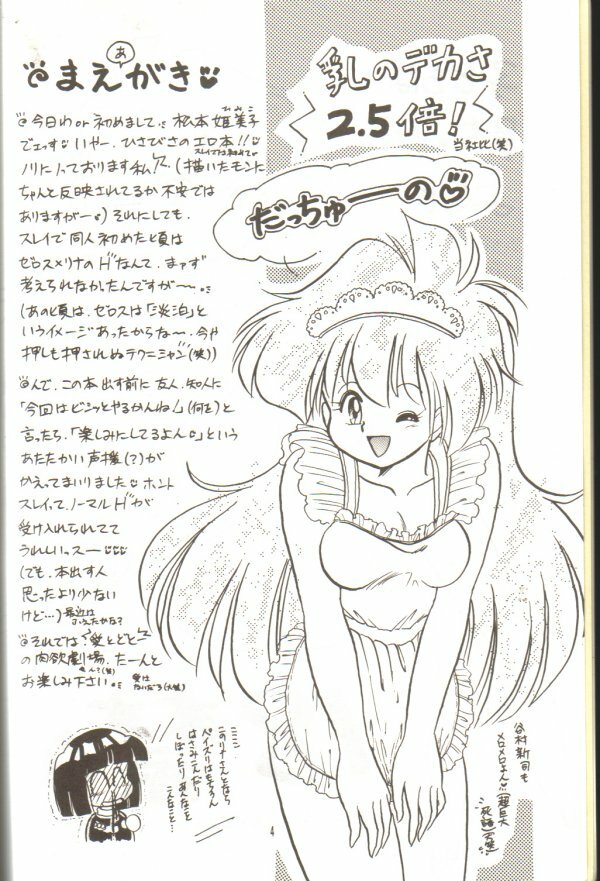 あ
まえがき
今日わ or 初めまして。松本 姫美子
ひみこ
でェっす。いやー、ひさびさのエロ本!!
ノリにノっております私
(描いたモンに
ちゃんと反映されてるか不安では
ありますがー) それにしても、
スレイで同人初めた頃は
ゼロスメリナのHなんて、まァず
考えられなかったんですがー。
(あの頃は、ゼロスは「淡泊」と
いうイメージあったからな〜、今や
押しも押されぬテクニシャン(笑))
んで、この本出す前に友人、知人に
「今回はビシッとやるかんね!」(何を)と
言ったら、「楽しみにしてるよん」という
あたたかい声援(?)が
かえってまいりました ホント
スレイって、ノーマルHが
受け入れられてて
うれしいっスー
(でも、本出す人
思ったより少ない
けど…)
最近は
ふえたかな?
それでは、愛とどとー
の肉欲劇場、たーんと
お楽しみ下さい。
愛は
ないだろ(大笑)
乳しのデカさ
2.5倍!
当社比(笑)
だっちゅーの
谷村新司も
メロメロよん
(超巨大
死語)
4